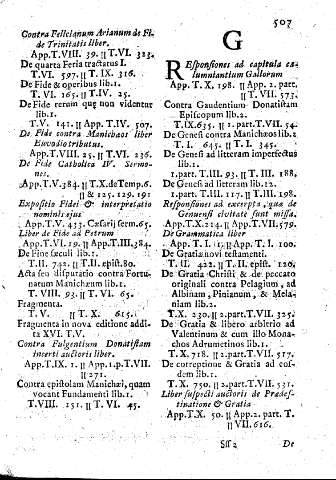 507
Contra Felicianum Arianum de Fi-
de Trinitatis liber.
App.T.VIII. 39. || T.VI. 323.
De quarta Feria tractatus I.
T.VI. 597. || T.IX. 316.
De Fide & operibus lib.1.
T.VI. 165. || T.IV. 25.
De Fide rerum quæ non videntur
lib.1.
T.V. 141. || App.T.IV. 507.
De Fide contra Manichæos liber
Evvodio tributus.
App.T.VIII. 25. || T.VI. 236.
De Fide Catholica IV. Sermo-
nes.
App.T.V.384. || T.X.deTemp.6.
|| & 125. 129. 191
Expositio Fidei & interpretatio
nominis ejus
App.T.V. 433. Cæsarij serm.65.
Liber de Fide ad Petrum
App.T.VI.19. || App.T.III.384.
De Fine sæculi lib.1.
T.II. 742. || T.II. epist.80.
Acta seu disputatio contra Fortu-
natum Manichæum lib.1.
T.VIII. 93. || T.VI. 65.
Fragmenta.
T.V. || T.X. 615.
Fragmenta in nova editione addi-
ta XVI. T.V.
Contra Fulgentium Donatistam
incerti auctoris liber.
App.T.IX. 1. || App.1.p.T.VII.
|| 271.
Contra epistolam Manichæi, quam
vocant Fundamenti lib.1.
T.VIII. 151. || T.VI. 45.
G
REsponsiones ad capitula ca-
lumniantium Gallorum
App.T.X. 198. || App.2.part.
|| T.VII. 573.
Contra Gaudentium Donatistam
Episcopum lib.2.
T.IX.635. || 1.part.T.VII.54.
De Genesi contra Manichæos lib.2
T.I. 645. || T.I. 345.
De Genesi ad litteram imperfectus
lib.1.
1.part.T.III. 93. || T.III. 188.
De Genesi ad litteram lib.12.
1.part.T.III. 117. || T.III. 198.
Responsiones ad excerpta, quæ de
Genuensi civitate sunt missa.
App.T.X.214. || App.T.VII.579.
De Grammatica liber
App.T.I. || App.T.I. 100.
De Gratia novi testamenti.
T.II. 422. || T.II. epist. 120.
De Gratia Christi & de peccato
originali contra Pelagium, ad
Albinam, Pinianum, & Mela-
niam lib.2.
T.X. 230. || 2.part.T.VII. 325.
De Gratia & libero arbitrio ad
Valentinum & cum illo Mona-
chos Adrumetinos lib.1.
T.X. 718. || 2.part.T.VII. 517.
De correptione & Gratia ad eos-
dem lib.1.
T.X. 750. || 2.part.T.VII. 531.
Liber suspecti auctoris de Prædes-
tinatione & Gratia
App.T.X. 50. || App.2.part.T.
|| VII. 616.
Sss 2 De